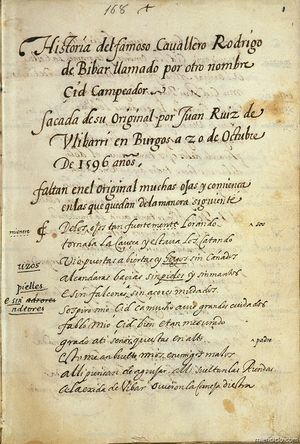 168
1
Historia del famoso Cavallero Rodrigo
de Bibar llamado por otro nombre
Cid Campeador.
sacada de su Original por Juan Ruiz de
Vlibarri en Burgos a 20 de Octubre
De 1596 años.
faltan en el Original muchas ojas y comienca
en las que quedan De la manera siguiente
De los ojos tan fuertemente Lorando
tornaba la cabeça y estava los catando
Vio puertas abiertas y sin cañados
alcandaras bacias sin pieles y sin mantos
E sin falcones sin adores mudados
Sospiro mio Cid ca mucho avie grandes cuidados
fablo mio Cid bien e tan mesurado
grado a ti señor que estas en alto
Esto me an buelto mios enemigos malos
alli piensan de aguijar alli sueltan las Riendas
A la exida de Vibar ovieron la corneja diestra
pielles